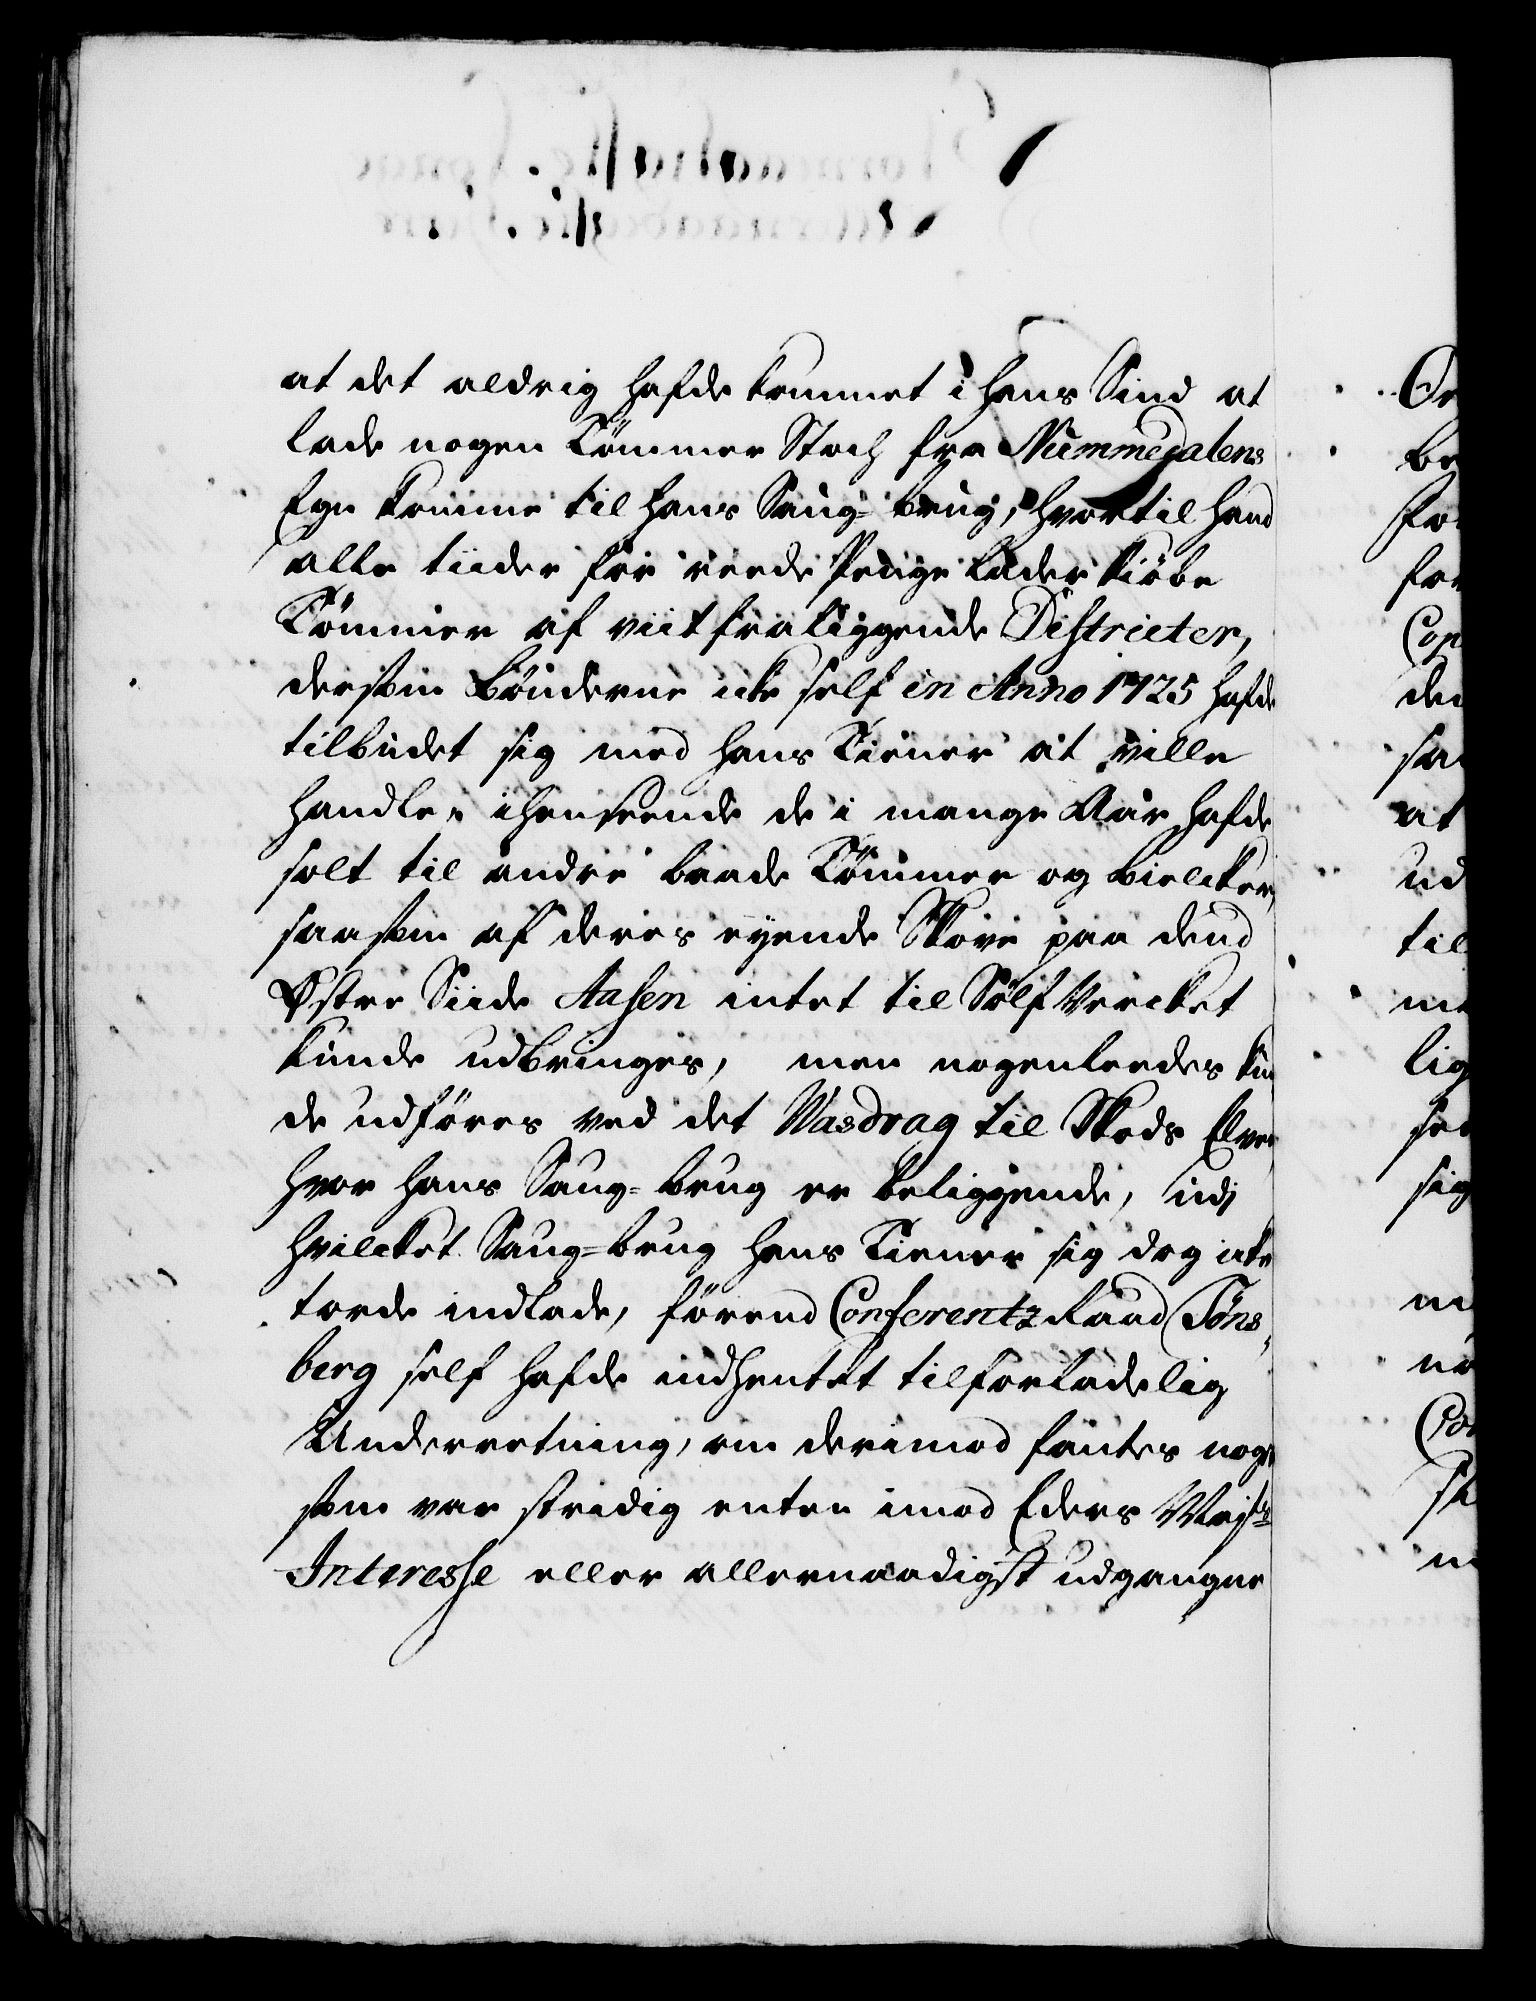 at det aldrig hafde kommet i hans Sind at
lade nogen Tömmer Stoch fra Nummedalens
Egn komme til hans Saug=brug, hvortil hand
alle tiider for reede Penge lader kiöbe
Tömmer af viit fraliggende Districter,
dersom Bönderne icke self in Anno 1725 hafde
tilbudet sig med hans Tiener at ville
handle, i henseende de i mange Aar hafde
solt til andre baade Tömmer og bielcker,
saasom af deres eyende Skove paa dend
Østre Siide Aasen intet til Sölf Vercket
kunde udbringes, men nogenleedes kun
de udföres ved det Vasdrag til Skeds Elven
hvor hans Saug=brug er beliggende, udj
hvilcket Saug=brug hans Tiener sig dog icke
torde indlade, förend Conferentz Raad Töns,
berg self hafde indhentet tilforladelig
Underretning, om derimod fantes noget
som var stridig enten imod Eders Majts
Interesse eller allernaadigst udgangne